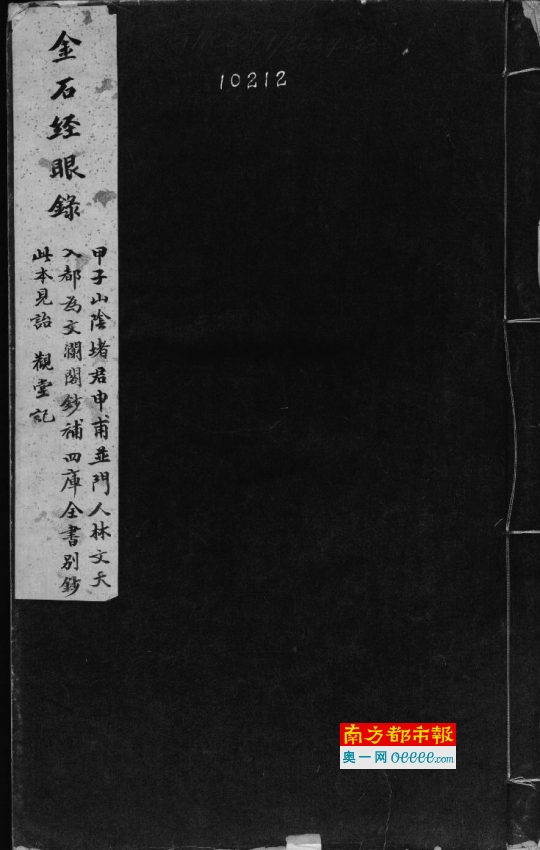 金石经眼錄
甲子山陰堵君申甫並門人林文天
入都為文瀾閣鈔補四庫全書別鈔
此本見詒 觀堂記
10212
南方都市報
奥一网 oeeee.com